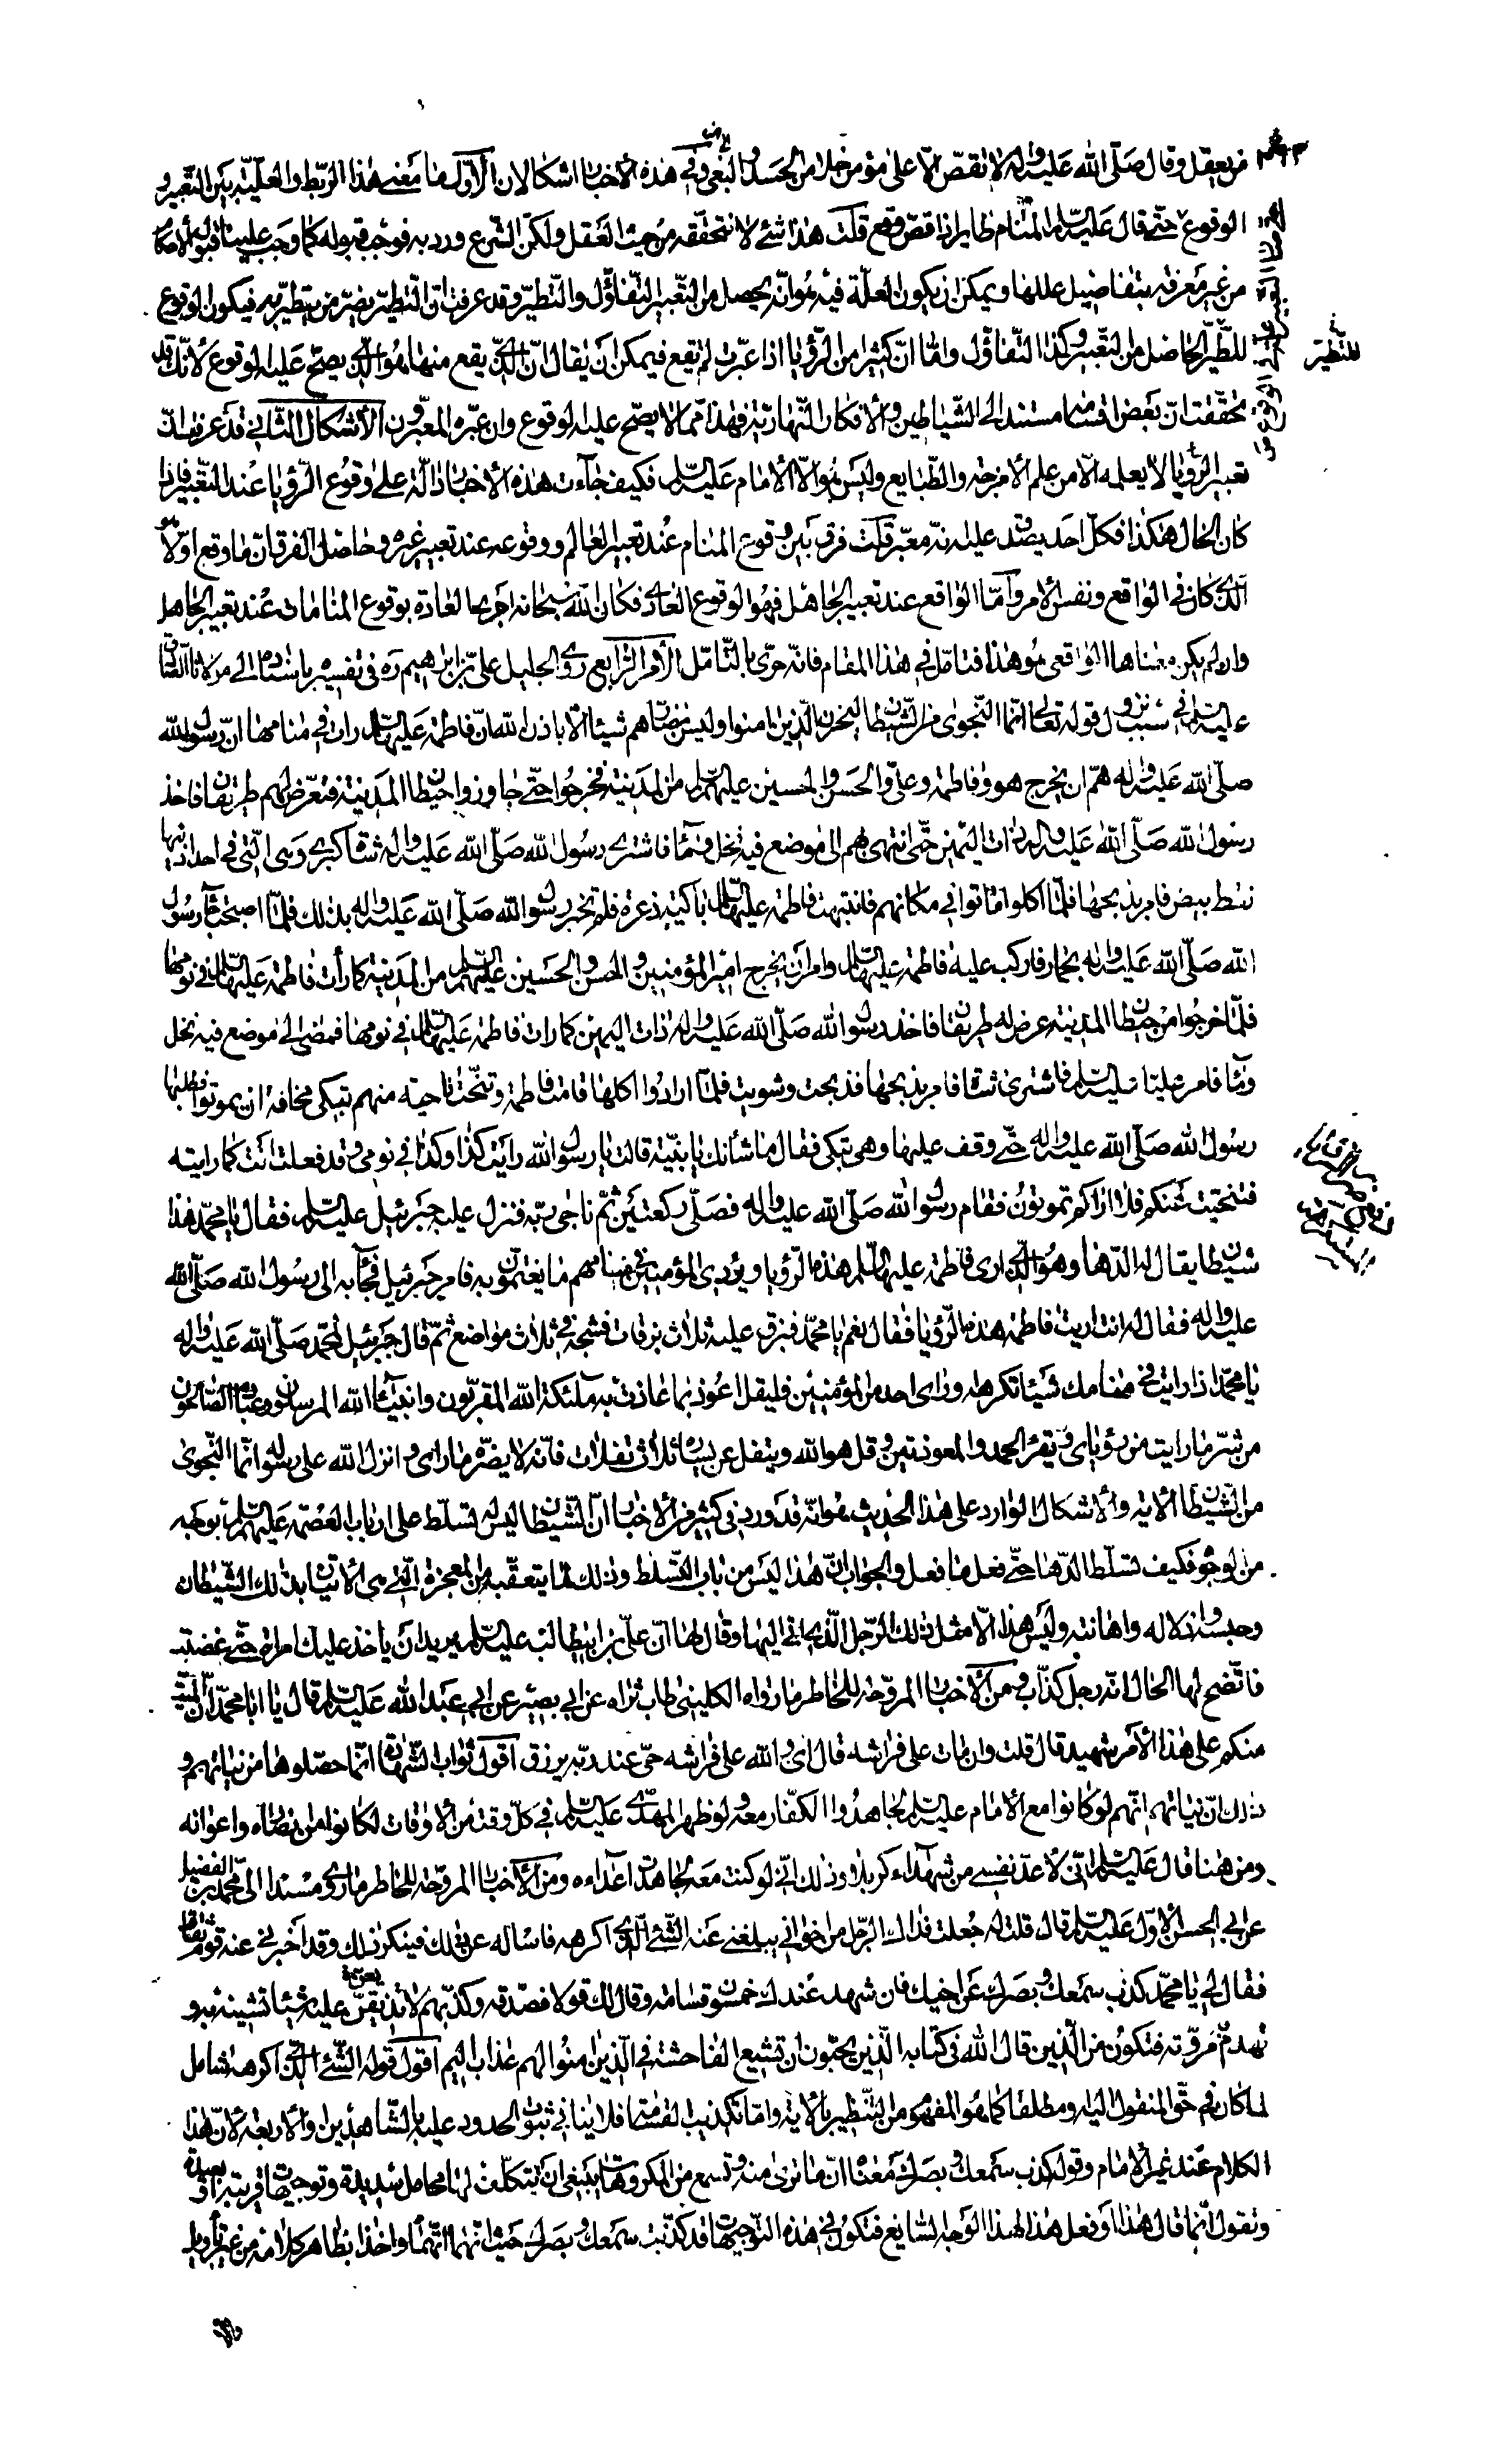 من يعقل وقال صلّى الله عليه واله لا تقصّ الّا على مؤمن خلا من الحسد والبغى وفي هذه الأخبار اشكالان الأوّل ما معنى هذا الربط والعليّة بين التعبير و
الوقوع حتّى قال عليه السلام المنام طاير اذا قصّ وقع قلت هذا شئ لا نتحققه من حيث العقل ولكن الشرع ورد به فوجب قبوله كما وجب علينا قبول الأحكام
من غير معرفة بتفاصيل عللها ويمكن ان يكون العلّة فيه هو انّه يحصل من التعبير التفأول والتطيّر وقد عرفت انّ التطيّر يضرّ من يتطيّر به فيكون الوقوع
للتطيّر الحاصل من التعبير وكذا التفاؤل وامّا انّ كثيرا من الرؤيا اذا عبّرت لم تقع فيمكن ان يقال انّ الّذي يقع منها هو الّذي يصحّ عليه الوقوع لأنّك قد
للتطيّر
تحققت انّ بعض اقسامها مستند الى الشياطين والأفكار النهاريّة فهذا ممّا لا يصحّ عليه الوقوع وان عبّره المعبّرون الأشكال الثاني قد عرفت انّ
تعبير الرؤيا لا يعلمه الّا من علم الأمزجة والطبايع وليس هو الّا الأمام عليه السلام فكيف جاءت هذه الأخبار دالّة على وقوع الرؤيا عند التعبير فاذا
كان الحال هكذا فكلّ احد يصدق عليه انّه معبّر قلت فرق بين وقوع المنام عند تعبير العالم ووقوعه عند تعبير غيره وحاصل الفرق انّ ما وقع اوّلا هو
الّذي كان في الواقع ونفس الأمر وامّا الواقع عند تعبير الجاهل فهو الوقوع العادي فكان الله سبحانه اجرى العادة بوقوع المنامات عند تعبير الجاهل
وان لم يكن معناها الواقعي هو هذا فتامّل في هذا المقام فانّه حرىّ بالتامّل الأمر الرابع روى الجليل علي بن ابرهيم ره في تفسيره باسناده الى مولانا الصادق
عليه السلام في سبب نزول قوله تعالى انّما النجوى من الشيطان ليحزن الّذين امنوا وليس بضارّهم شيئا الّا باذن الله انّ فاطمة عليها السلام رات في منامها انّ رسول الله
صلّى الله عليه واله همّ ان يخرج هو وفاطمة وعليّ والحسن والحسين عليهم السلام من المدينة فخرجوا حتّى جاوزوا حيطان المدينة فتعرّض لهم طريقان فاخذ
رسول الله صلّى الله عليه واله ذات اليمين حتّى انتهى بهم الى موضع فيه نخل وماء فاشترى رسول الله صلّى الله عليه واله شاة كبرى وهي الّتي في احد اذنيها
نقط بيض فامر بذبحها فلمّا اكلوا ماتوا في مكانهم فانتبهت فاطمة عليها السلام باكية ذعرة فلم تخبر رسول الله صلّى الله عليه واله بذلك فلمّا اصبحت جاء رسول
الله صلّى الله عليه واله بحمار فاركب عليه فاطمة عليها السلام وامر ان يخرج امير المؤمنين والحسن والحسين عليهم السلام من المدينة كما رأت فاطمة عليها السلام في نومها
فلمّا خرجوا من حيطان المدينة عرض له طريقان فاخذ رسول الله صلّى الله عليه واله ذات اليمين كما رات فاطمة عليها السلام في نومها فمضى الى موضع فيه نخل
وماء فامر عليّا عليه السلام فاشترى شاة فامر بذبحها فذبحت وشويت فلمّا ارادوا اكلها قامت فاطمة وتنحّت ناحية منهم تبكى مخافة ان يموتوا فطلبها
رسول الله صلّى الله عليه واله حتّى وقف عليها وهي تبكى فقال ما شأنك يا بنيّة قالت يا رسول الله رايت كذا وكذا في نومي وقد فعلت انت كما رايته
فتنحّيت عنكم فلا اراكم تموتون فقام رسول الله صلّى الله عليه واله فصلّى ركعتين ثمّ ناجى ربّه فنزل عليه جبرئيل عليه السلام فقال يا محمّد هذا
شيطان يقال له الدّهار وهو الّذي ارى فاطمة عليها السلام هذه الرؤيا ويؤذي المؤمنين في منامهم ما يغتمّون به فامر جبرئيل فجاء به الى رسول الله صلّى الله
عليه واله فقال له انت اريت فاطمة هذه الرؤيا فقال نعم يا محمّد فبزق عليه ثلاث بزقات فشجّه في ثلاث مواضع ثمّ قال جبرئيل لمحمّد صلّى الله عليه واله
يا محمّد اذا رايت في منامك شيئا تكرهه وراى احد من المؤمنين فليقل اعوذ بما عاذت به ملئكة الله المقرّبون وانبيآء الله المرسلون وعباده الصالحون
من شرّ ما رايت من رؤياى وتقرء الحمد والمعوذتين وقل هو الله ويتفل عن يساره ثلاث تفلات فانّه لا يضرّه ما راى وانزل الله على رسوله انّما النجوى
من الشيطان الأية والأشكال الوارد على هذا الحديث هو انّه قد ورد في كثير من الأخبار انّ الشيطان ليس له تسلّط على ارباب العصمة عليهم السلام بوجه
من الوجوه فكيف تسلّط الدّهار حتّى فعل ما فعل والجواب انّ هذا ليس من باب التسلّط وذلك لما يتعقّبه من المعجزة الّتي هي الأتيان بذلك الشيطان
وحبسه واذلاله واهانته وليس هذا الّا مثل ذلك الرجل الّذي اتى اليها وقال لها انّ عليّ بن ابيطالب عليه السلام يريد ان ياخذ عليك امراة حتّى غضبت
فاتّضح لها الحال انّه رجل كذّاب ومن الأخبار المروّحة للخاطر ما رواه الكليني طاب ثراه عن ابي بصير عن ابي عبد الله عليه السلام قال يا ابا محمّد انّ الميّت
منكم على هذا الأمر شهيد قال قلت وان مات على فراشه قال اى والله على فراشه حىّ عند ربّه يرزق اقول ثواب الشهادة انّما حصلوها من نيّاتهم و
ذلك انّ نيّاتهم انّهم لو كانوا مع الأمام عليه السلام لجاهدوا الكفّار معه ولو ظهر المهدىّ عليه السلام في كلّ وقت من الأوقات لكانوا من انصاره واعوانه
ومن هنا قال عليه السلام انّى لأعدّ نفسي من شهدآء كربلا وذلك انّي لو كنت معه لجاهدت اعداءه ومن الأخبار المروّحة للخاطر ما روى مسندا الى محمّد بن الفضيل
عن ابي الحسن الأوّل عليه السلام قال قلت له جعلت فداك الرجل من اخواني يبلغني عنه الشئ الّذي اكرهه فاساله عن ذلك فينكر ذلك وقد اخبرني عنه قوم ثقات
فقال لي يا محمّد كذّب سمعك وبصرك عن اخيك فان شهد عندك خمسون قسامة وقال لك قولا فصدّقه وكذّبهم لا تذيعنّ عليه شيئا تشينه به و
تهدم مروّته فتكون من الّذين قال الله في كتابه الّذين يحبّون ان تشيع الفاحشة في الّذين امنوا لهم عذاب اليم اقول قوله الشئ الّذي اكرهه شامل
لما كان في حقّ المنقول اليه ومطلقا كما هو المفهوم من التنظير بالأية وامّا تكذيب القسامة فلا ينافي ثبوت الحدود عليه بالشاهدين والأربعة لأنّ هذا
الكلام عند غير الأمام وقوله كذّب سمعك وبصرك معناه انّ ما ترى منه وتسمع من المكروهات ينبغي ان تتكلّف لها محامل سديدة وتوجيهات قريبة او بعيدة
وتقول انّما قال هذا او فعل هذا لهذا الوجه السايغ فتكون في هذه التوجيهات قد كذّبت سمعك وبصرك حيث انّهما اتّهما واخذا بظاهر كلامه من غير تأويل